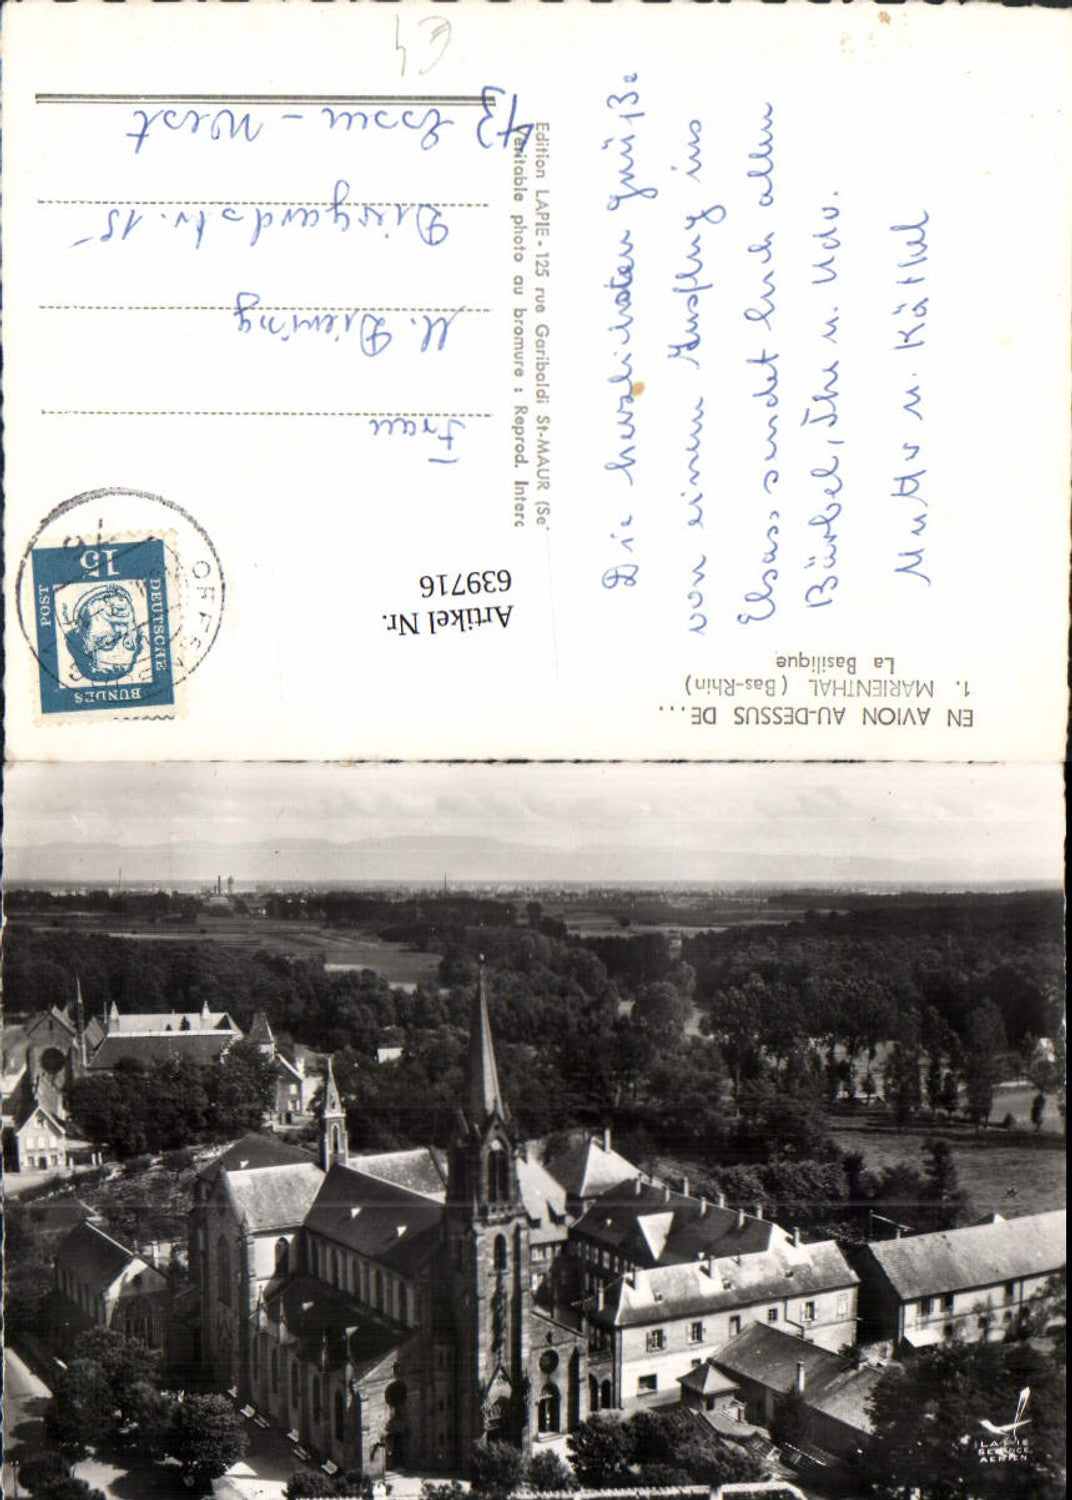 EN AVION AU-DESSUS DE...
1. MARIENTHAL (Bas-Rhin)
La Basilique
Die herzlichsten Grüße
von einem Ausflug ins
Elsass sendet Euch allen
Bärbel, Ihr u. Udo.
Mutti u. Käthel
Edition LAPIE - 125 rue Garibaldi St-MAUR (Se
Véritable photo au bromure : Reprod. Interc
Artikel Nr.
639716
DEUTSCHE
BUNDES
POST
15
OFFENBURG
Frau
M. Diening
43 Essen - West
€4
LAPIE
SERVICE
AERIEN